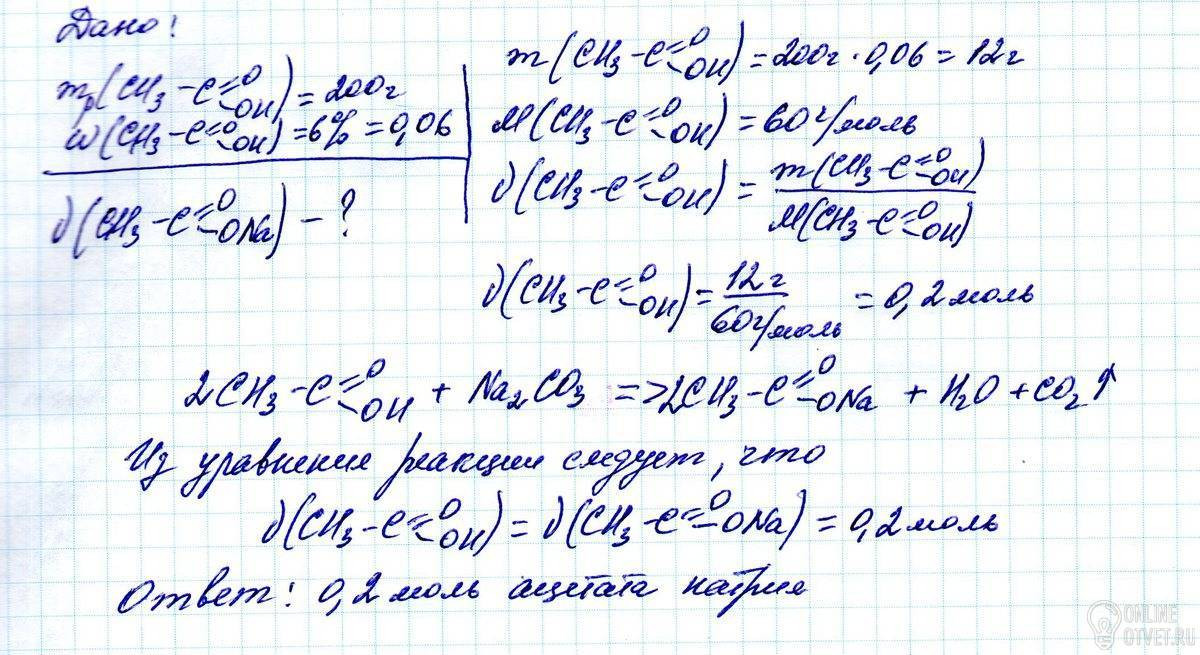 Дано:
mр(CH3-C=O-OH)=200г
ω(CH3-C=O-OH)=6%=0,06
ν(CH3-C=O-ONa)-?
m(CH3-C=O-OH)=200г·0,06=12г
M(CH3-C=O-OH)=60г/моль
ν(CH3-C=O-OH)=m(CH3-C=O-OH)/M(CH3-C=O-OH)
ν(CH3-C=O-OH)=12г/60г/моль=0,2моль
2CH3-C=O-OH+Na2CO3=>2CH3-C=O-ONa+H2O+CO2↑
Из уравнения реакции следует, что
ν(CH3-C=O-OH)=ν(CH3-C=O-ONa)=0,2моль
Ответ: 0,2 моль ацетата натрия
ONLINE
OTVET.RU